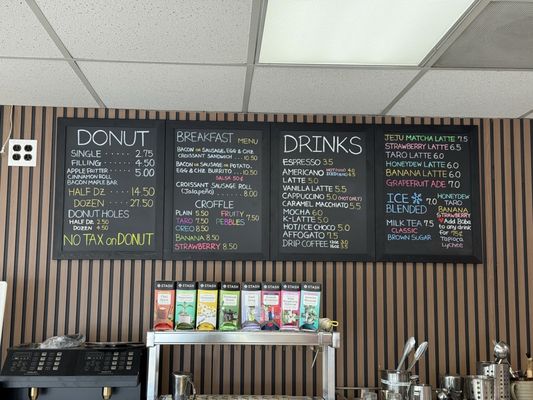 DONUT
SINGLE 2.75
FILLING 4.50
APPLE FRITTER 5.00
CINNAMON ROLL
BACON MAPLE BAR
HALF DZ. 14.50
DOZEN 27.50
DONUT HOLES
HALF DZ 2.50
DOZEN 4.50
NO TAX on DONUT
BREAKFAST MENU
BACON OR SAUSAGE, EGG & CHZ
CROISSANT SANDWICH 10.50
BACON OR SAUSAGE OR POTATO,
EGG & CHZ BURRITO 10.50
SALSA
CROISSANT SAUSAGE ROLL
(Jalapeño) 8.50
CROFFLE
PLAIN 5.50
TARO 7.50
OREO 8.50
BANANA 8.50
STRAWBERRY 8.50
FRUITY PEBBLES 7.50
DRINKS
ESPRESSO 3.5
AMERICANO
LATTE 5.0
VANILLA LATTE 5.5
CAPPUCCINO 5.0 (HOT)
CARAMEL MACCHIATO 5.5
MOCHA 6.0
K-LATTE 5.0
HOT/ICE CHOCOLATE 5.0
AFFOGATO 7.5
DRIP COFFEE
JEJU MATCHA LATTE 7.5
STRAWBERRY LATTE 6.5
TARO LATTE 6.0
HONEYDEW LATTE 6.0
BANANA LATTE 6.0
GRAPEFRUIT ADE 7.0
ICE BLENDED 7.0
HONEYDEW
TARO
BANANA
STRAWBERRY
MILK TEA 7.5
CLASSIC
BROWN SUGAR
Add Boba
to any drink
for 75¢
Tapioca
Lychee
STASH
STASH
STASH
STASH
STASH
STASH
STASH
STASH